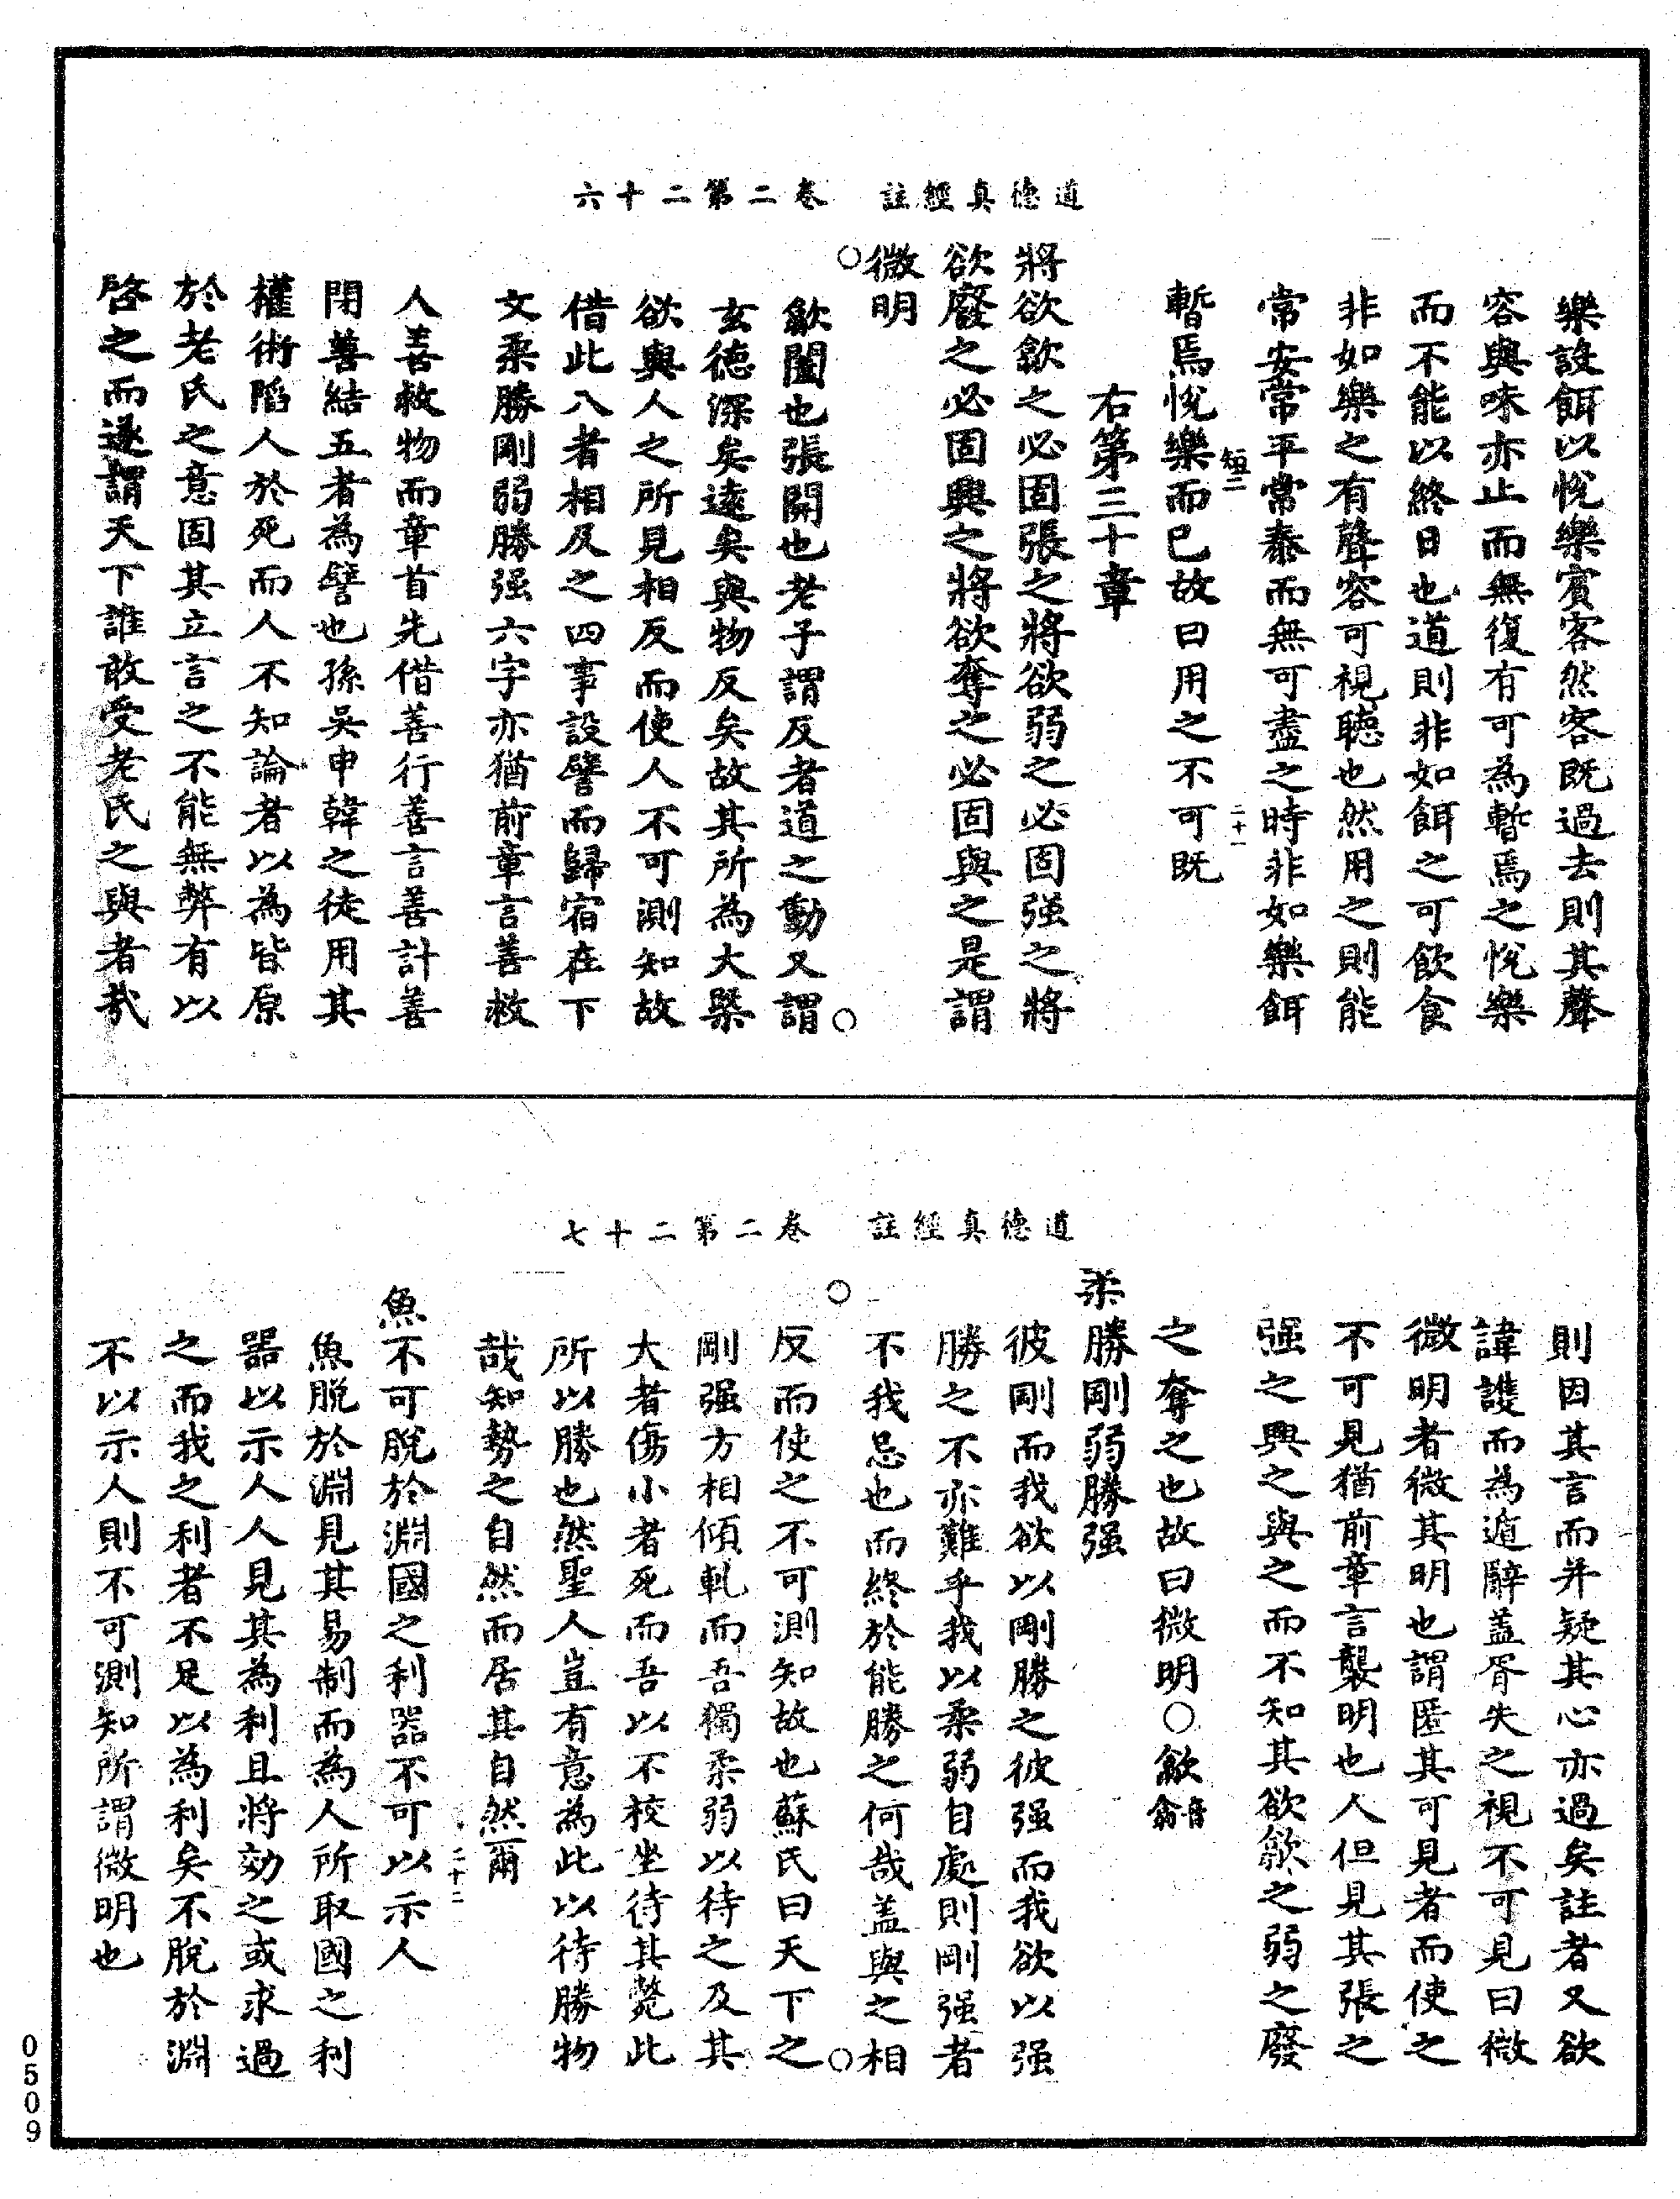 道德真經註　卷二第二十六
樂設餌以悅樂賓客然客既過去則其聲
容與味亦止而無復有可為暫焉之悅樂
而不能以終日也道則非如餌之可飲食
非如樂之有聲容可視聽也然用之則能
常安常平常泰而無可盡之時非如樂餌
短二　二十一
暫焉悅樂而已故曰用之不可既
右第三十章
將欲歙之必固張之將欲弱之必固强之將
欲廢之必固興之將欲奪之必固與之是謂
微明
○歙闔也張開也老子謂反者道之動又謂○
玄德深矣遠矣與物反矣故其所為大槩
欲與人之所見相反而使人不可測知故
借此八者相反之四事設譬而歸宿在下
文柔勝剛弱勝强六字亦猶前章言善救
人善救物而章首先借善行善言善計善
閉善結五者為譬也孫吳申韓之徒用其
權術陷人於死而人不知論者以為皆原
於老氏之意固其立言之不能無弊有以
啓之而遂謂天下誰敢受老氏之與者哉
道德真經註　卷二第二十七
則因其言而并疑其心亦過矣註者又欲
諱護而為遁辭蓋胥失之視不可見曰微
微明者微其明也謂匿其可見者而使之
不可見猶前章言襲明也人但見其張之
强之興之與之而不知其欲歙之弱之廢
之奪之也故曰微明○歙音翕
柔勝剛弱勝强
彼剛而我欲以剛勝之彼强而我欲以强
勝之不亦難乎我以柔弱自處則剛强者
不我忌也而終於能勝之何哉蓋與之相
○反而使之不可測知故也蘇氏曰天下之○
剛强方相傾軋而吾獨柔弱以待之及其
大者傷小者死而吾以不校坐待其斃此
所以勝也然聖人豈有意為此以待勝物
哉知勢之自然而居其自然爾
二十二
魚不可脫於淵國之利器不可以示人
魚脫於淵見其易制而為人所取國之利
器以示人人見其為利且將効之或求過
之而我之利者不足以為利矣不脫於淵
不以示人則不可測知所謂微明也
0509